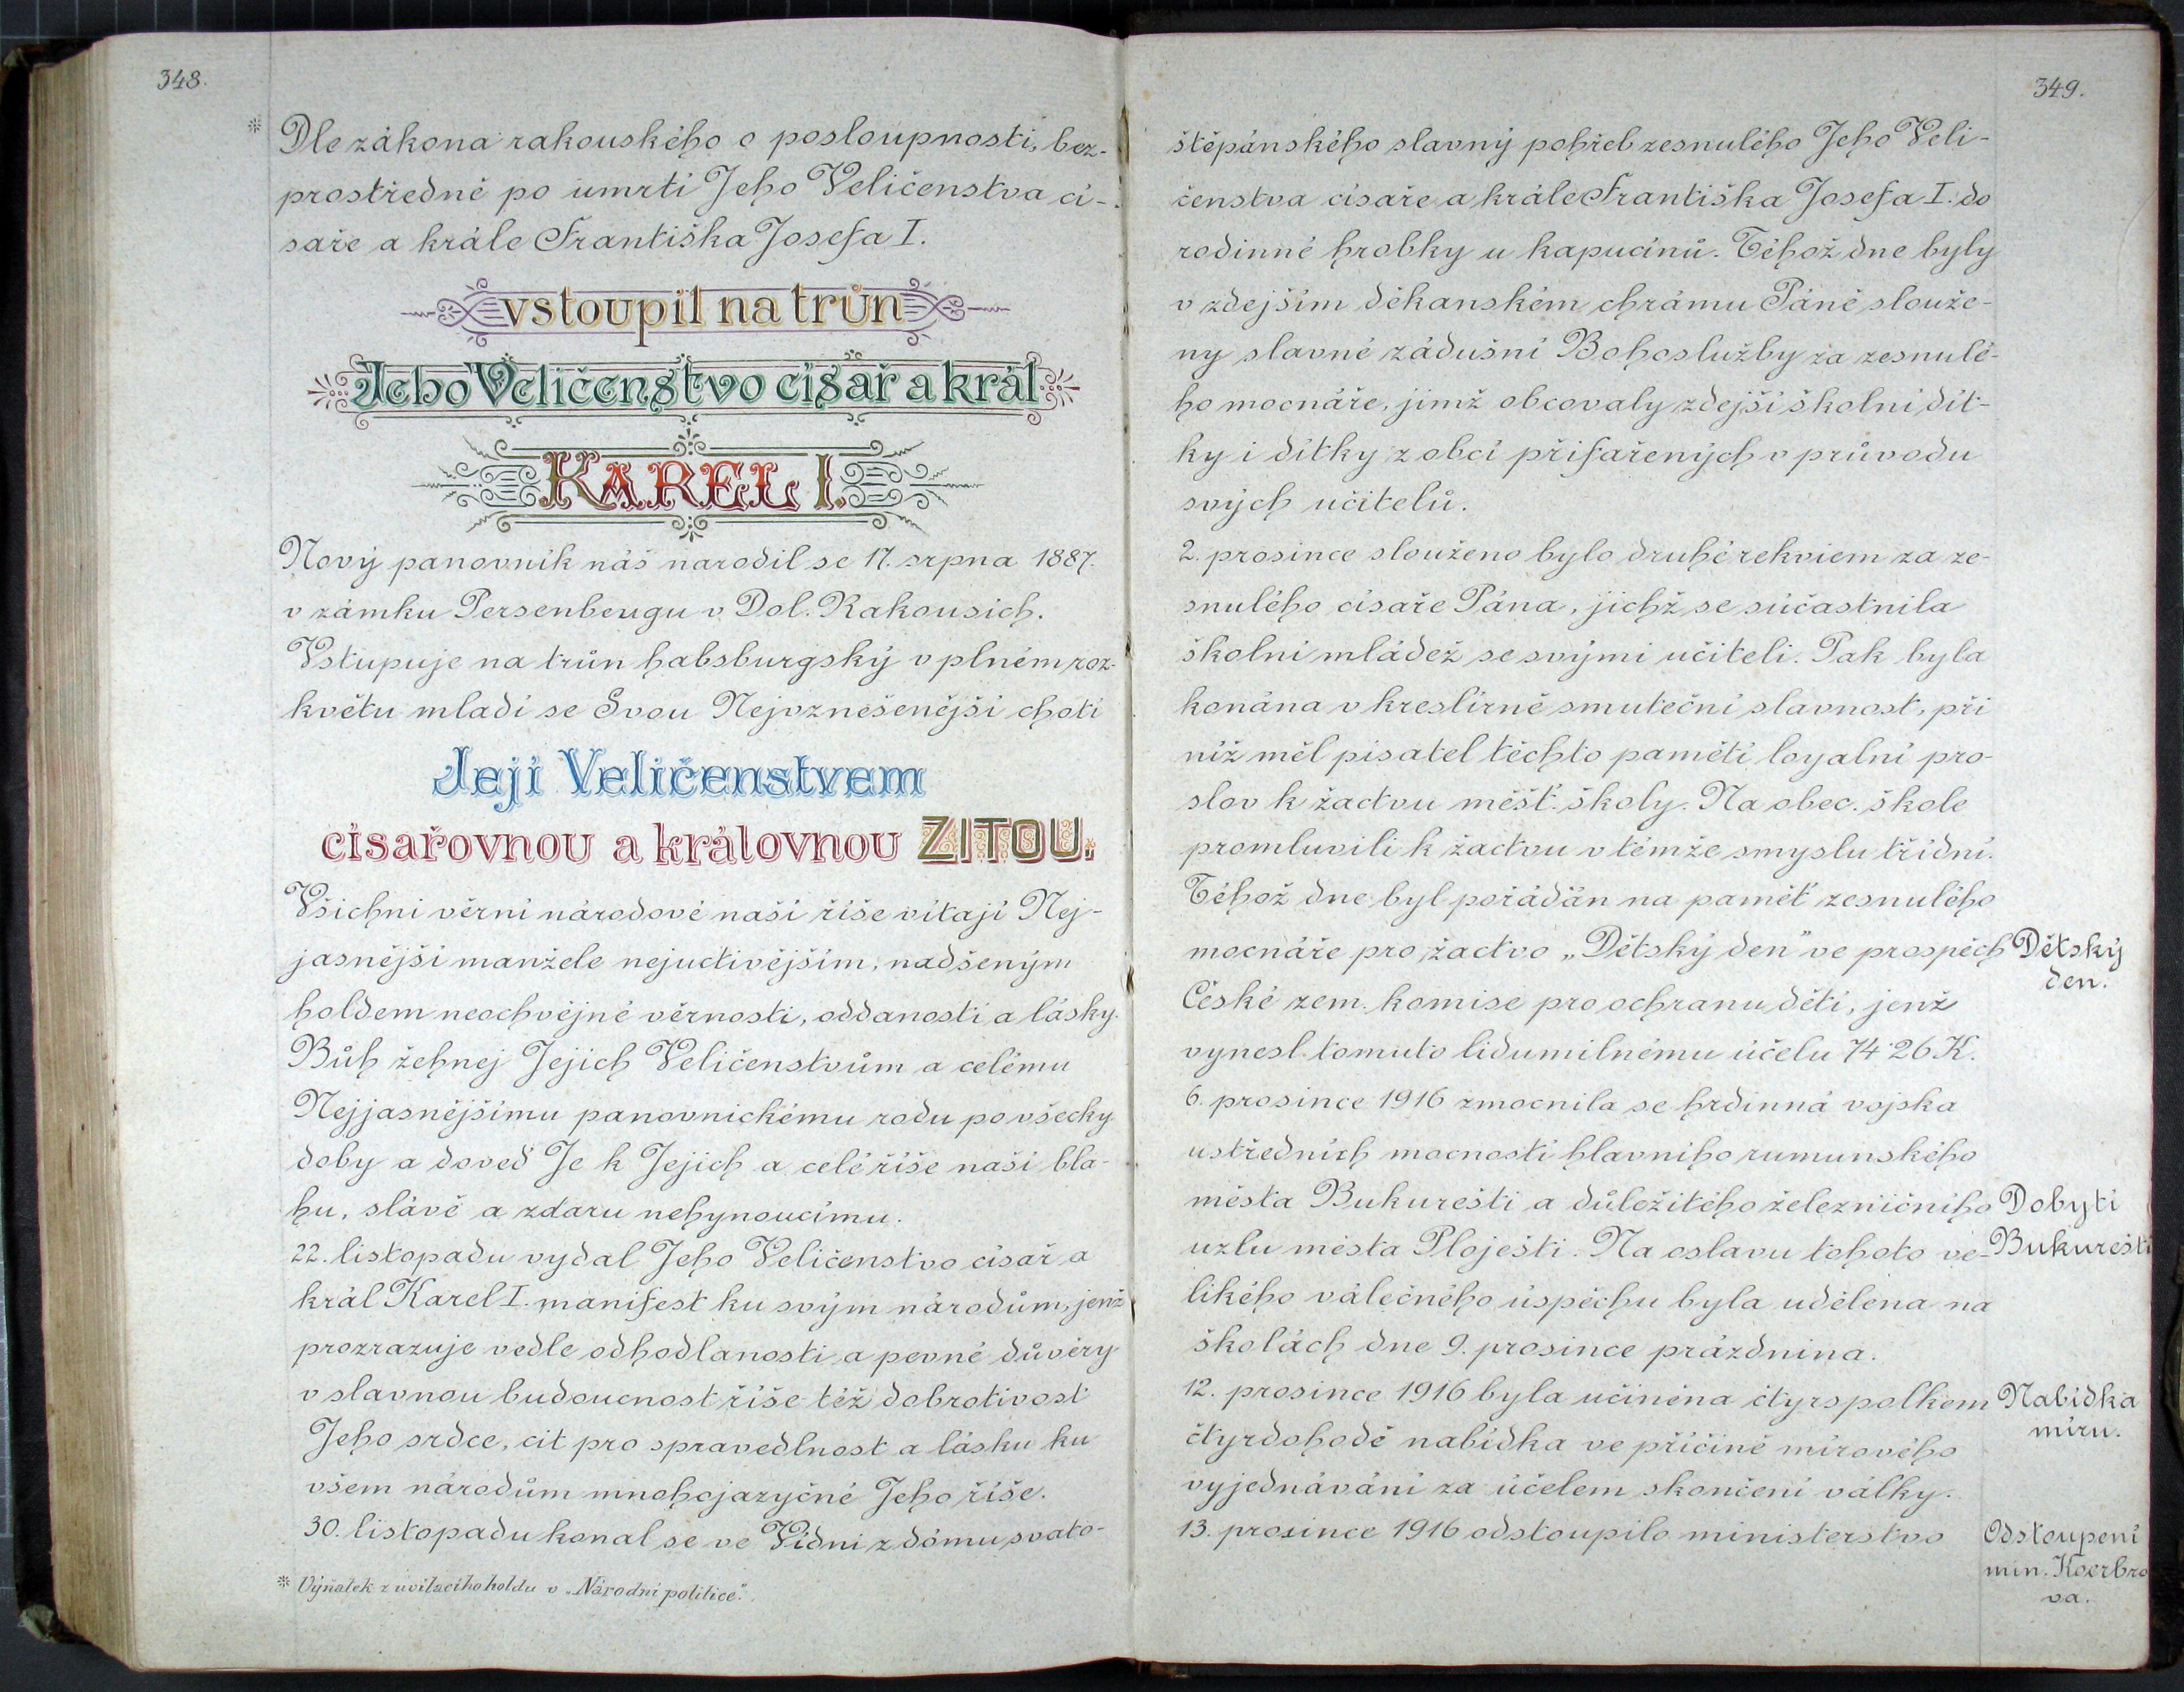 348.
* Dle zákona rakouského o posloupnosti, bez-
prostředně po úmrtí Jeho Veličenstva cí-
saře a krále Františka Josefa I.
vstoupil na trůn
Jeho Veličenstvo císař a král
KAREL I.
Nový panovník náš narodil se 17. srpna 1887.
v zámku Persenbeugu v Dol. Rakousích.
Vstupuje na trůn habsburgský v plném roz-
květu mladí se Svou Nejvznešenější chotí
Její Veličenstvem
císařovnou a královnou ZITOU.
Všichni věrní národové naší říše vítají Nej-
jasnější manžele nejuctivějším, nadšeným
holdem neochvějné věrnosti, oddanosti a lásky.
Bůh žehnej Jejich Veličenstvům a celému
Nejjasnějšímu panovnickému rodu po všecky
doby a doveď Je k Jejich a celé říše naší bla-
hu, slávě a zdaru nehynoucímu.
22. listopadu vydal Jeho Veličenstvo císař a
král Karel I. manifest ku svým národům, jenž
prozrazuje vedle odhodlanosti a pevné důvěry
v slavnou budoucnost říše též dobrotivost
Jeho srdce, cit pro spravedlnost a lásku ku
všem národům mnohojazyčné Jeho říše.
30. listopadu konal se ve Vídni z dómu svato-
* Výňatek z uvítacího holdu v „Národní politice".
349.
štěpánského slavný pohřeb zesnulého Jeho Veli-
čenstva císaře a krále Františka Josefa I. do
rodinné hrobky u kapucínů. Téhož dne byly
v zdejším děkanském chrámu Páně slouže-
ny slavné zádušní Bohoslužby za zesnulé-
ho mocnáře, jimž obcovaly zdejší školní dít-
ky i dítky z obcí přifařených v průvodu
svých učitelů.
2. prosince slouženo bylo druhé rekviem za ze-
snulého císaře Pána, jichž se súčastnila
školní mládež se svými učiteli. Pak byla
konána v kreslírně smuteční slavnost, při
níž měl pisatel těchto pamětí loyalní pro-
slov k žactvu měšť. školy. Na obec. škole
promluvili k žactvu v témže smyslu třídní.
Téhož dne byl pořádán na paměť zesnulého
mocnáře pro žactvo „Dětský den" ve prospěch
Dětský
den.
České zem. komise pro ochranu dětí, jenž
vynesl tomuto lidumilnému účelu 74·26 K.
6. prosince 1916 zmocnila se hrdinná vojska
ustředních mocností hlavního rumunského
města Bukurešti a důležitého železničního
Dobytí
Bukurešti
uzlu města Plojěšti. Na oslavu tohoto ve-
likého válečného úspěchu byla udělena na
školách dne 9. prosince prázdnina.
12. prosince 1916 byla učiněna čtyrspolkem
Nabídka
míru.
čtyrdohodě nabídka ve příčině mírového
vyjednávání za účelem skončení války.
13. prosince 1916 odstoupilo ministerstvo
Odstoupení
min. Koerbro
va.